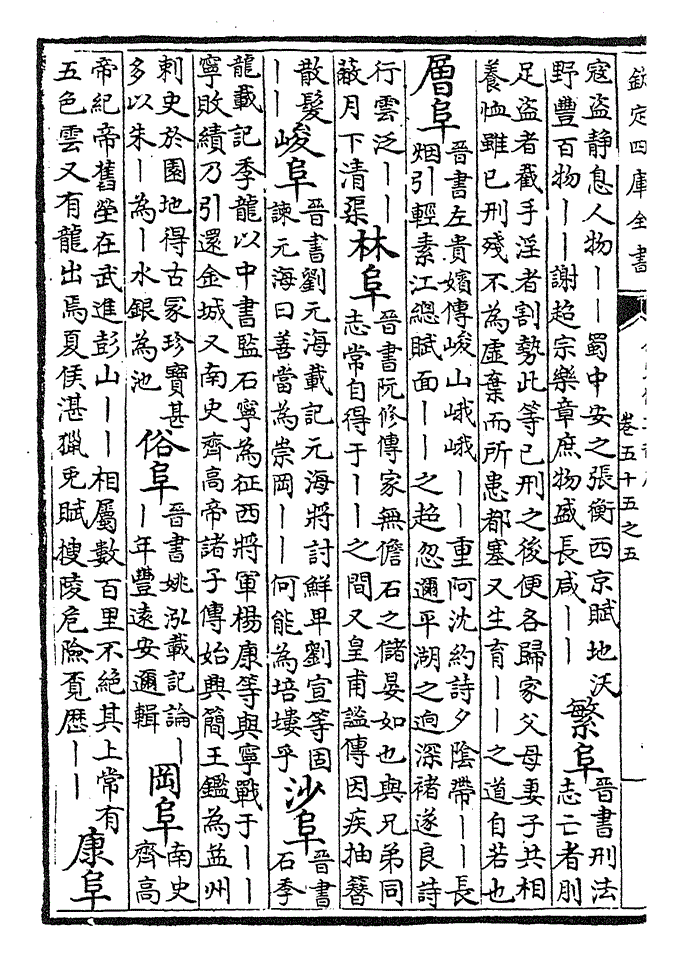 欽定四庫全書
卷五十五之五
寇盜静息人物丨丨蜀中安之張衡西京賦地沃
野豐百物丨丨謝超宗樂章庶物盛長咸丨丨
繁阜
晉書刑法
志亡者刖
足盜者截手淫者割勢此等已刑之後便各歸家父母妻子共相
養恤雖已刑殘不為虛棄而所患都塞又生育丨丨之道自若也
層阜
晉書左貴嬪傳峻山峨峨丨丨重阿沈約詩夕陰帶丨丨長
烟引輕素江總賦面丨丨之超忽邇平湖之逈深褚遂良詩
行雲泛丨丨
蔽月下清渠
林阜
晉書阮修傳家無儋石之儲晏如也與兄弟同
志常自得于丨丨之間又皇甫謐傳因疾抽簪
散髮
丨丨
峻阜
晉書劉元海載記元海將討鮮卑劉宣等固
諫元海曰善當為崇岡丨丨何能為培塿乎
沙阜
晉書
石季
龍載記季龍以中書監石寧為征西將軍楊康等與寧戰于丨丨
寧敗績乃引還金城又南史齊高帝諸子傳始興簡王鑑為益州
刺史於園地得古冢珍寶甚
多以朱丨為丨水銀為池
俗阜
晉書姚泓載記論丨
丨年豐遠安邇輯
岡阜
南史
齊高
帝紀帝舊塋在武進彭山丨丨相屬數百里不絕其上常有
五色雲又有龍出焉夏侯湛獵兎賦搜陵危險覔歷丨丨
康阜